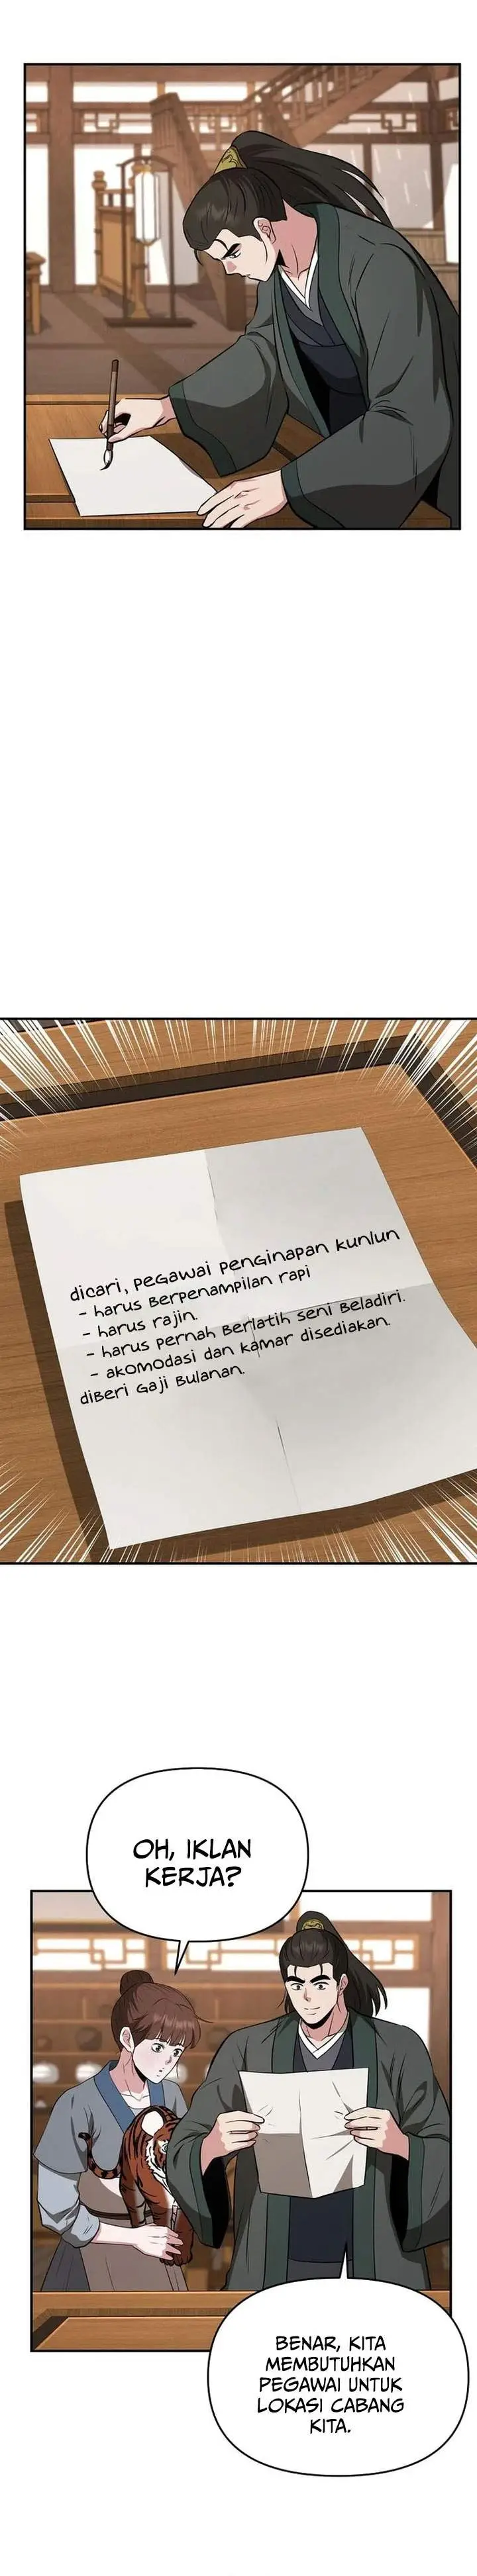 dicari, pegawai penginapan kunlun
- harus berpenampilan rapi
- harus rajin.
- harus pernah berlatih seni beladiri.
- akomodasi dan kamar disediakan.
diberi gaji bulanan.
OH, IKLAN
KERJA?
BENAR, KITA
MEMBUTUHKAN
PEGAWAI UNTUK
LOKASI CABANG
KITA.